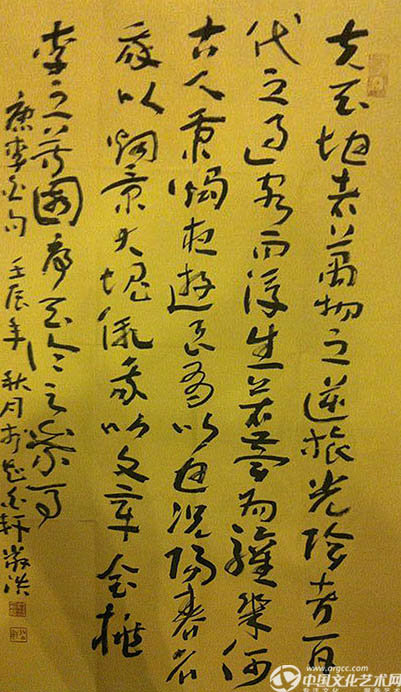 夫天地者萬物之逆旅光陰者百
代之過客而浮生若夢為歡幾何
古人秉燭夜遊良有以也況陽春召
我以烟景大塊假我以文章會桃
李之芳園序天倫之樂事
唐李白句 壬辰年秋月於軒
www.argcc.com
中国文化艺术网